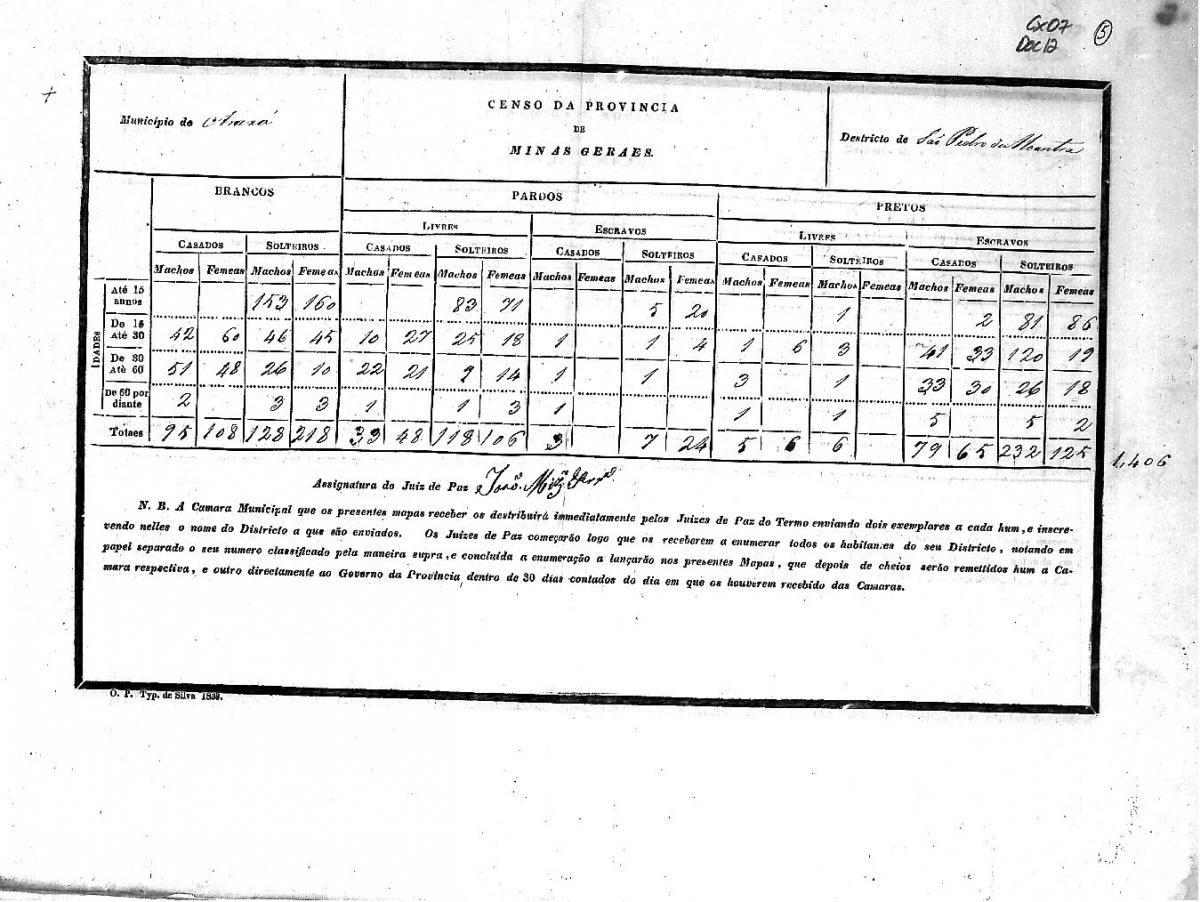 Cx07
Doc 12
5
Municipio de Araxá
CENSO DA PROVINCIA
DE
MINAS GERAES.
Destricto de São Pedro de Alcantra
BRANCOS PARDOS PRETOS
LIVRES ESCRAVOS LIVRES ESCRAVOS
CASADOS SOLTEIROS CASADOS SOLTEIROS CASADOS SOLTEIROS CASADOS SOLTEIROS CASADOS SOLTEIROS
Machos Femeas Machos Femeas Machos Femeas Machos Femeas Machos Femeas Machos Femeas Machos Femeas Machos Femeas Machos Femeas Machos Femeas
IDADES
Até 15 annos 153 160 83 71 5 20 1 2 81 86
De 15 Até 30 42 60 46 45 10 27 25 18 1 1 4 1 6 3 41 33 120 19
De 30 Até 60 51 48 26 10 22 21 9 14 1 1 3 1 33 30 26 18
De 60 por diante 2 3 3 1 1 3 1 1 1 5 5 2
Totaes 95 108 128 218 33 48 118 106 3 7 24 5 6 6 79 65 232 125 1,406
Assignatura do Juiz de Paz
N. B. A Camara Municipal que os presentes mapas receber os destribuirá immediatamente pelos Juizes de Paz do Termo enviando dois exemplares a cada hum, e inscre-
vendo nelles o nome do Districto a que são enviados. Os Juizes de Paz começarão logo que os receberem a enumerar todos os habitantes do seu Districto, notando em
papel separado o seu numero classificado pela maneira supra, e concluida a enumeração a lançarão nos presentes Mapas, que depois de cheios serão remettidos hum a Ca-
mara respectiva, e outro directamente ao Governo da Provincia dentro de 30 dias contados do dia em que os houverem recebido das Camaras.
O. P. Typ. de Silva 1839.